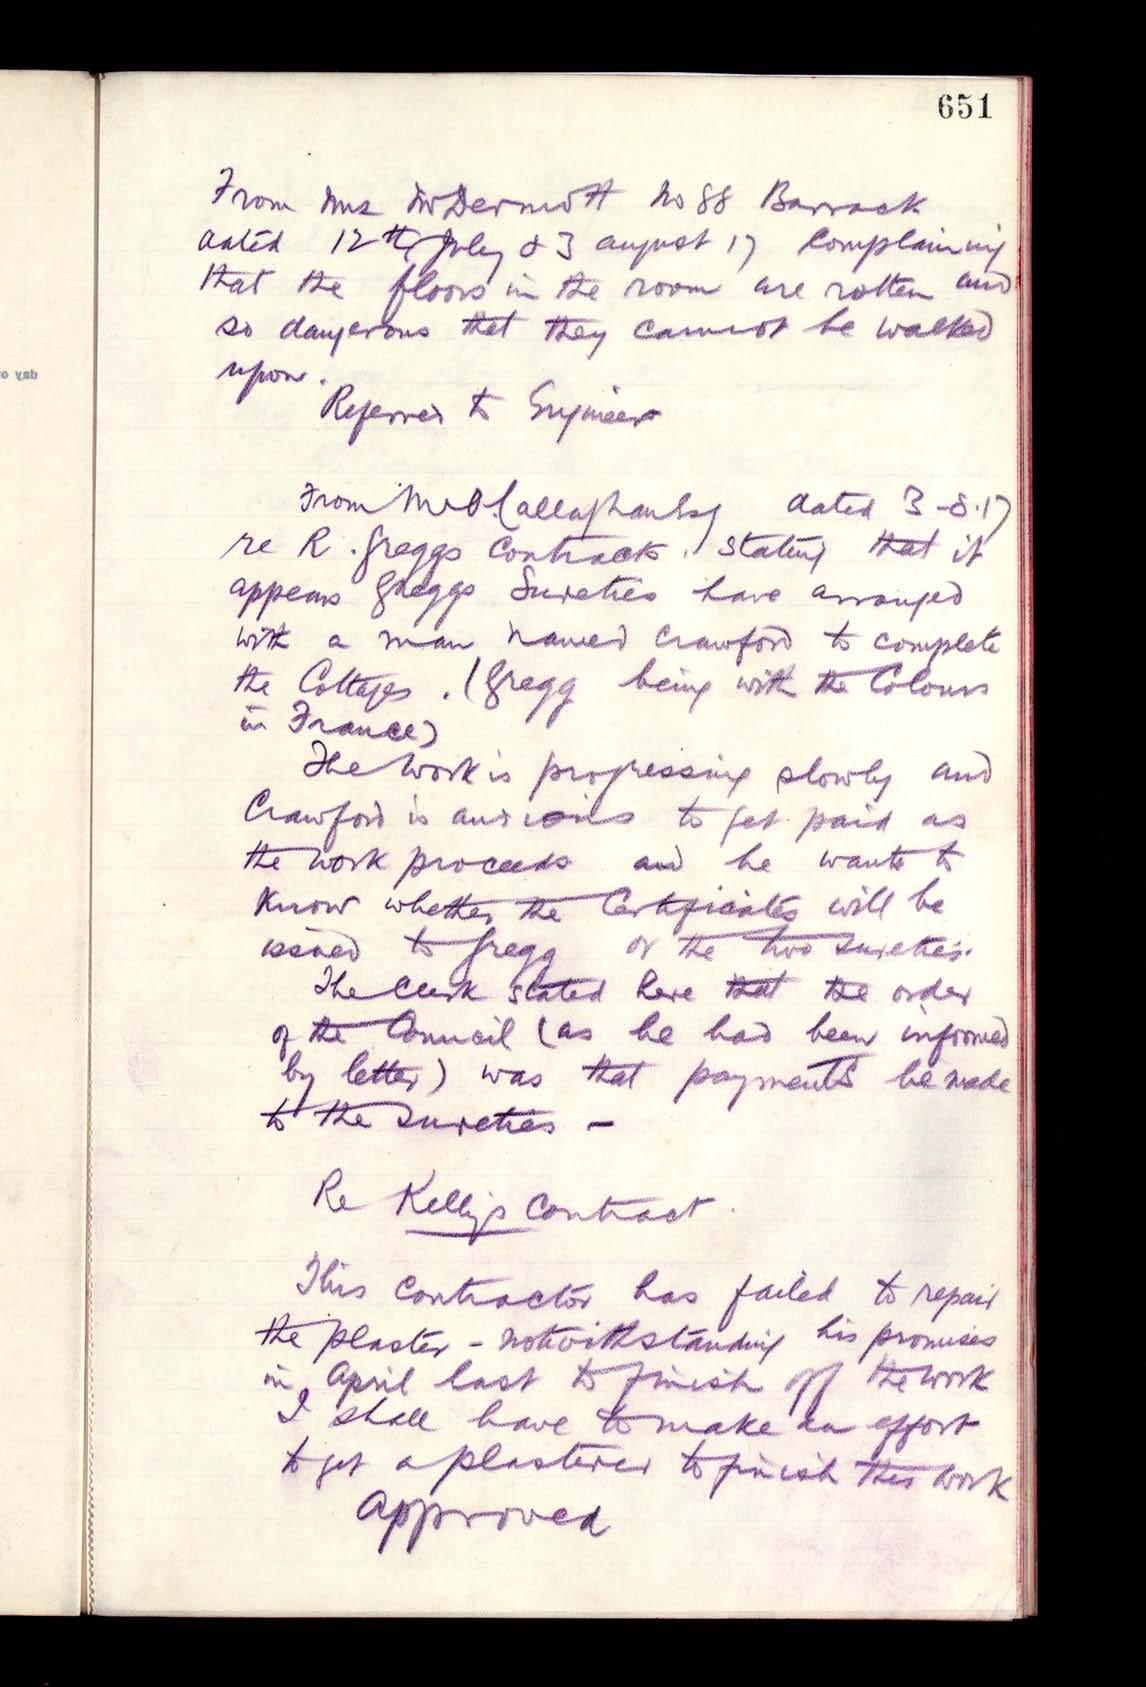 651
From Mrs McDermott No 88 Barrack
dated 12th July & 3 august 17 Complaining
that the floors in the room are rotten and
so dangerous that they cannot be walked
upon.
Referred to Engineer
From Mr D. Callaghan Esq dated 3-8-17
re R. Greggs Contracts. Stating that it
appears Greggs Sureties have arranged
with a man named Crawford to complete
the Cottages. (Gregg being with the Colours
in France)
The work is progressing slowly and
Crawford is anxious to get paid as
the work proceeds and he wants to
know whether the Certificates will be
issued to Gregg or the two sureties.
The Clerk stated here that the order
of the Council (as he had been informed
by letter) was that payments be made
to the sureties -
Re Kelly's Contract.
This contractor has failed to repair
the plaster - notwithstanding his promises
in April last to finish off the work
I shall have to make an effort
to get a plasterer to finish this work
Approved